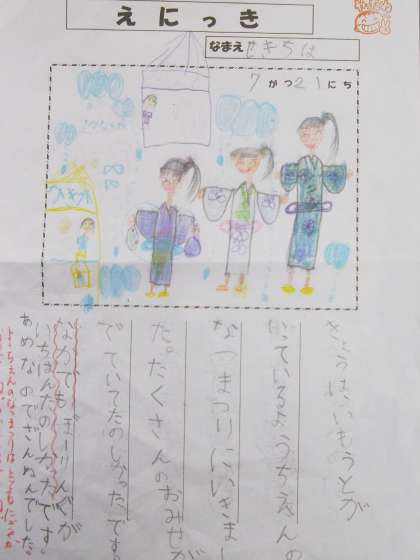 えにっき
なまえ せきちほ
7がつ21にち
きょうは、いもうとが
かっているようちえんの
なつまつりにいきまし
た。たくさんのおみせが
でていてたのしかったです。
なかでもぼーりんぐが
いちばんたのしかったです。
あめなのでざんねんでした。